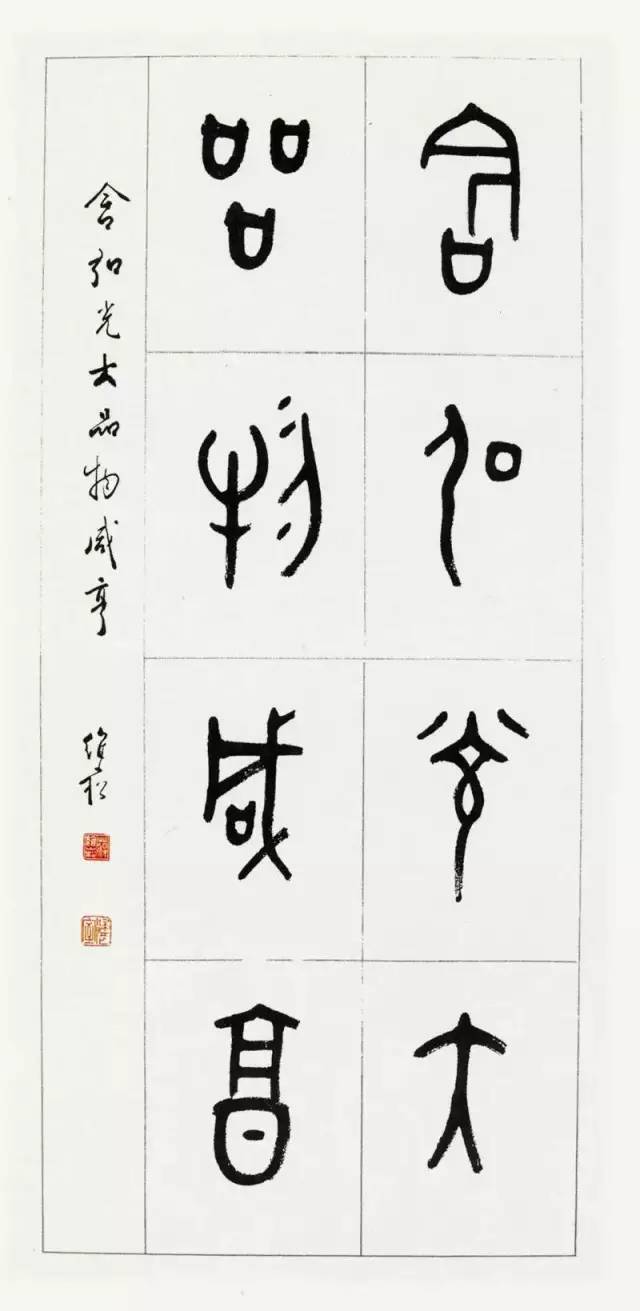 含弘光大
品物咸亨
含弘光大品物咸亨